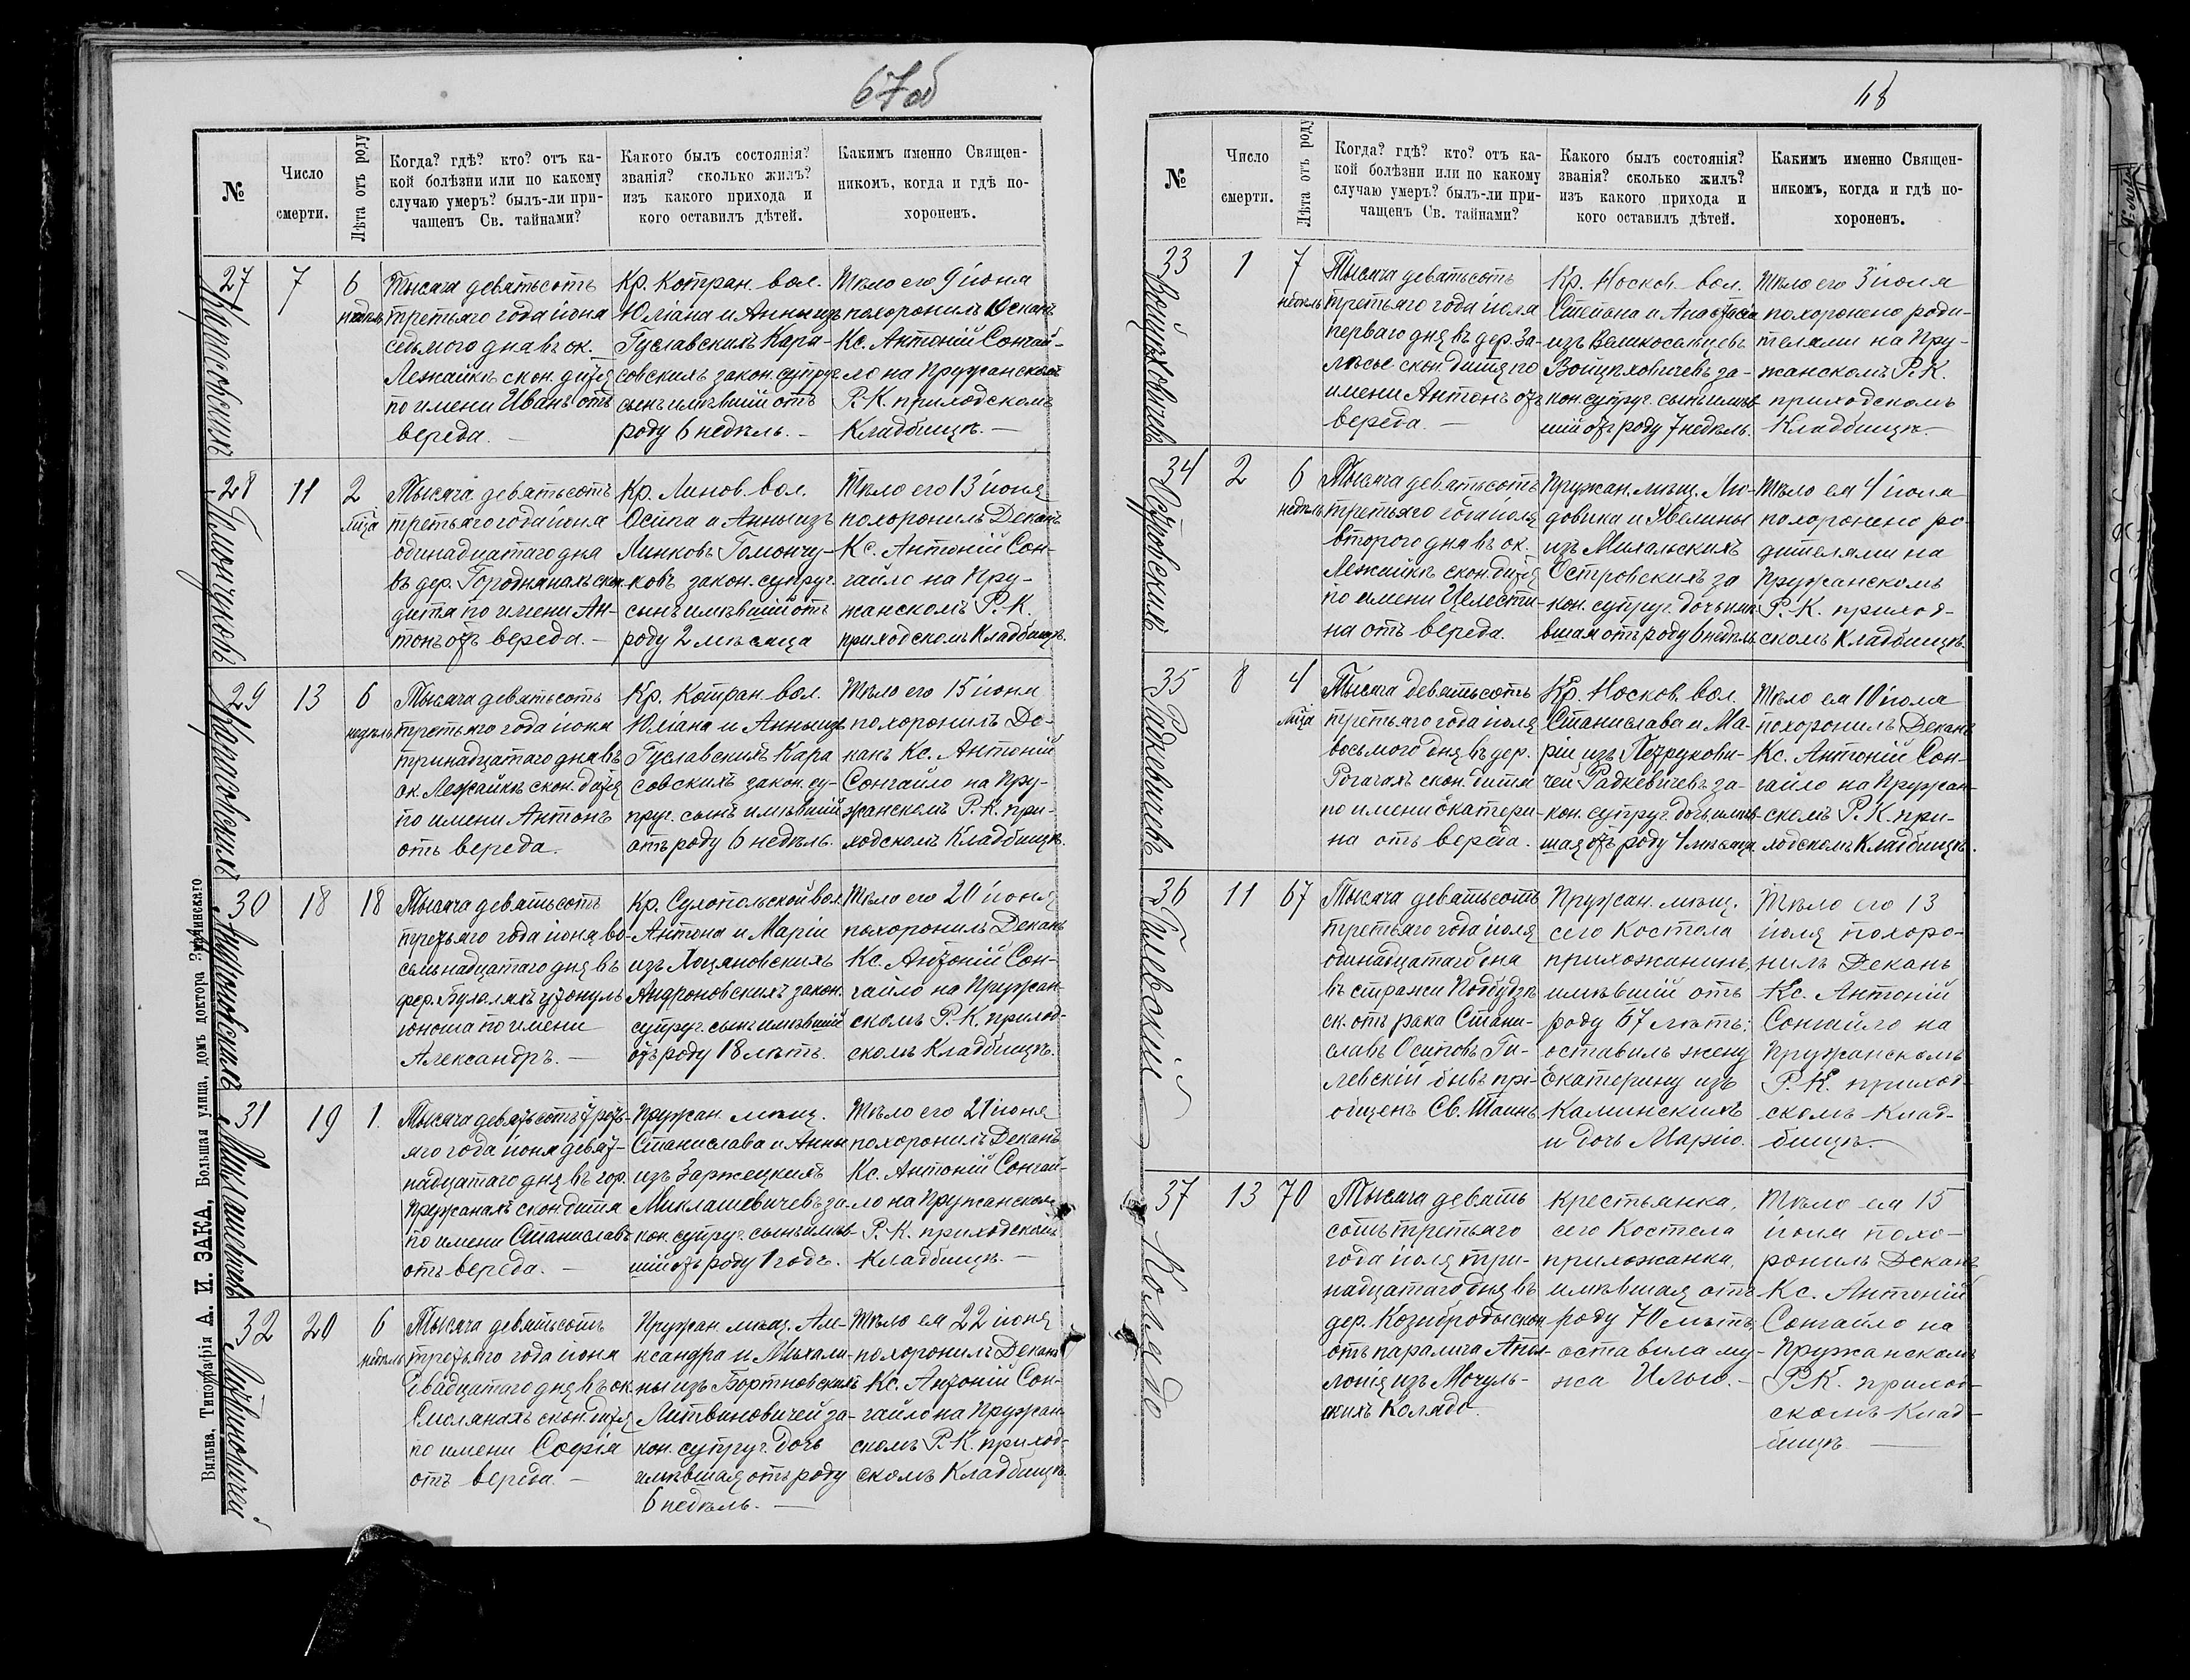 67об
№
Число
смерти.
Лѣта отъ роду
Когда? гдѣ? кто? отъ ка-
кой болѣзни или по какому
случаю умеръ? былъ-ли при-
чащенъ Св. тайнами?
Какого былъ состоянія?
званія? сколько жилъ?
изъ какого прихода и
кого оставилъ дѣтей.
Какимъ именно Священ-
никомъ, когда и гдѣ по-
хороненъ.
27
Карасовскихъ
7
6
недѣль
Тысяча девятьсотъ
третьяго года іюня
седьмого дня въ ок.
Лежайкѣ скон. дитя
по имени Иванъ отъ
вереда. —
Кр. Котран. вол.
Юліана и Анны изъ
Гуславскихъ Кара-
совскихъ закон. супруг.
сынъ имѣвшій отъ
роду 6 недѣль. —
Тѣло его 9 іюня
похоронилъ Деканъ
Кс. Антоній Сонгай-
ло на Пружанскомъ
Р.-К. приходскомъ
Кладбищѣ. —
28
Гомончуковъ
11
2
м-ца
Тысяча девятьсотъ
третьяго года іюня
одинадцатаго дня
въ дер. Городнянахъ скон.
дитя по имени Ан-
тонъ отъ вереда. —
Кр. Линов. вол.
Осипа и Анны изъ
Линковъ Гомончу-
ковъ закон. супруг.
сынъ имѣвшій отъ
роду 2 мѣсяца
Тѣло его 13 іюня
похоронилъ Деканъ
Кс. Антоній Сон-
гайло на Пру-
жанскомъ Р.-К.
приходскомъ Кладбищѣ.
29
Карасовскихъ
13
6
недѣль
Тысяча девятьсотъ
третьяго года іюня
тринадцатаго дня въ
ок. Лежайкѣ скон. дитя
по имени Антонъ
отъ вереда.
Кр. Котран. вол.
Юліана и Анны изъ
Гуславскихъ Кара
совскихъ закон. су-
пруг. сынъ имѣвшій
отъ роду 6 недѣль.
Тѣло его 15 іюня
похоронилъ Де-
канъ Кс. Антоній
Сонгайло на Пру-
жанскомъ Р.-К. при-
ходскомъ Кладбищѣ.
30
Андроновскихъ
18
18
Тысяча девятьсотъ
третьяго года іюня во-
семьнадцатаго дня въ
утонулъ
юноша по имени
Александръ. —
Кр. Сухопольской вол.
Антона и Маріи
изъ
Андроновскихъ закон.
супруг. сынъ имѣвшій
отъ роду 18 лѣтъ.
Тѣло его 20 іюня
похоронилъ Деканъ
Кс. Антоній Сон-
гайло на Пружан-
скомъ Р.-К. приход-
скомъ Кладбищѣ.
31
Миклашевичевъ
19
1.
Тысяча девятьсотъ треть-
яго года іюня девят-
надцатаго дня въ гор.
Пружанахъ скон. дитя
по имени Станиславъ
отъ вереда. —
Пружан. мѣщ.
Станислава и Анны
изъ Заржецкихъ
Миклашевичевъ за-
кон. супруг. сынъ имѣв-
шій отъ роду 1 годъ.
Тѣло его 21 іюня
похоронилъ Деканъ
Кс. Антоній Сонгай-
ло на Пружанскомъ
Р.-К. приходскомъ
Кладбищѣ. —
32
Литвиновичей
20
6
недѣль
Тысяча девятьсотъ
третьяго года іюня
двадцатаго дня въ ок.
Смолянахъ скон. дитя
по имени Софія
отъ вереда. —
Пружан. мѣщ. Але-
ксандра и Михали-
ны изъ Бортновскихъ
Литвиновичей за-
кон. супруг. дочь
имѣвшая отъ роду
6 недѣль. —
Тѣло ея 22 іюня
похоронилъ Деканъ
Кс. Антоній Сон-
гайло на Пружан-
скомъ Р.-К. приход-
скомъ Кладбищѣ.
Вильна, Типографія А. И. ЗАКА, Большая улица, домъ доктора Змачинскаго
68
№
Число
смерти.
Лѣта отъ роду
Когда? гдѣ? кто? отъ ка-
кой болѣзни или по какому
случаю умеръ? былъ-ли при-
чащенъ Св. тайнами?
Какого былъ состоянія?
званія? сколько жилъ?
изъ какого прихода и
кого оставилъ дѣтей.
Какимъ именно Священ-
никомъ, когда и гдѣ по-
хороненъ.
33
Войцѣховичевъ
1
7
недѣль
Тысяча девятьсотъ
третьяго года іюля
перваго дня въ дер. За-
лѣсье скон. дитя по
имени Антонъ отъ
вереда. —
Кр. Носков. вол.
Степана и Анастасіи
изъ Великосельцевъ
Войцѣховичевъ за-
кон. супруг. сынъ имѣв-
шій отъ роду 7 недѣль.
Тѣло его 3 іюля
похоронено роди-
телями на Пру-
жанскомъ Р.-К.
приходскомъ
Кладбищѣ.
34
Островскихъ
2
6
недѣль
Тысяча девятьсотъ
третьяго года іюля
второго дня въ ок.
Лежайкѣ скон. дитя
по имени Целести-
на отъ вереда.
Пружан. мѣщ. Лю-
довика и Эвелины
изъ Михальскихъ
Островскихъ за
кон. супруг. дочь имѣ-
вшая отъ роду 6 недѣль
Тѣло ея 4 іюля
похоронено ро-
дителями на
Пружанскомъ
Р.-К. приход-
скомъ Кладбищѣ.
35
Радкевичевъ
8
4
м-ца
Тысяча девятьсотъ
третьяго года іюля
восьмого дня въ дер.
Рогачахъ скон. дитя
по имени Екатери-
на отъ вереда.
Кр. Носков. вол.
Станислава и Ма-
ріи изъ Петрукови-
чей Радкевичевъ за-
кон. супруг. дочь имѣв-
шая отъ роду 4 мѣсяца
Тѣло ея 10 іюля
похоронилъ Деканъ
Кс. Антоній Сон-
гайло на Пружан-
скомъ Р.-К. при-
ходскомъ Кладбищѣ.
36
Гилевскій
11
67
Тысяча девятьсотъ
третьяго года іюля
одинадцатаго дня
въ стражи
ск. отъ рака Стани-
славъ Осиповъ Ги-
левскій бывъ прі-
общенъ Св. Таинъ
Пружан. мѣщ.
сего Костела
прихожанинъ,
имѣвшій отъ
роду 67 лѣтъ;
оставилъ жену
Екатерину изъ
Каминскихъ
и дочь Марію.
Тѣло его 13
іюля похоро-
нилъ Деканъ
Кс. Антоній
Сонгайло на
Пружанскомъ
Р.-К. приход-
скомъ Клад-
бищѣ. —
37
Колядо
13
70
Тысяча девять
сотъ третьяго
года іюля три-
надцатаго дня въ
дер. Козибродъ скон.
отъ паралича Апол-
лонія изъ Мочуль-
скихъ Колядо.
Крестьянка,
сего Костела
прихожанка,
имѣвшая отъ
роду 70 лѣтъ,
оставила му-
жа Илью. —
Тѣло ея 15
іюля похо-
ронилъ Деканъ
Кс. Антоній
Сонгайло на
Пружанскомъ
Р.К. приход-
скомъ Клад-
бищѣ. —